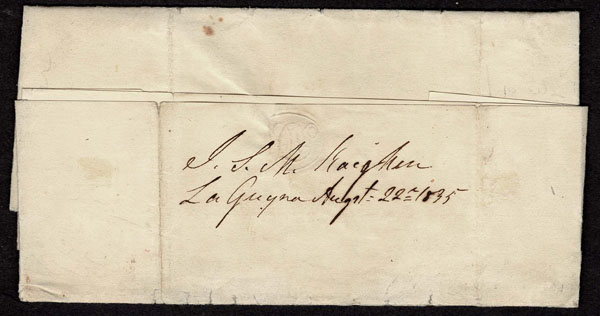 J. S. M. Kaighen
La Guyra Augst. 22nd 1835